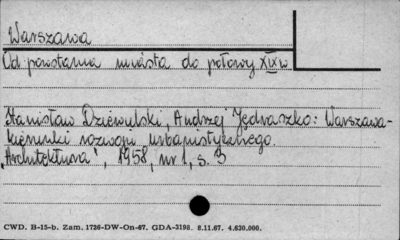 Warszawa
Od powstania miasta do połowy XIXw
Stanisław Dziewulski, Andrzej Jędraszko: Warszawa-
kierunki rozwoju urbanistycznego.
"Architektura", 1958, nr 1, s. 3
CWD. B-15-b. Zam. 1726-DW-On-67. GDA-3198. 8.11.67. 4.630.000.